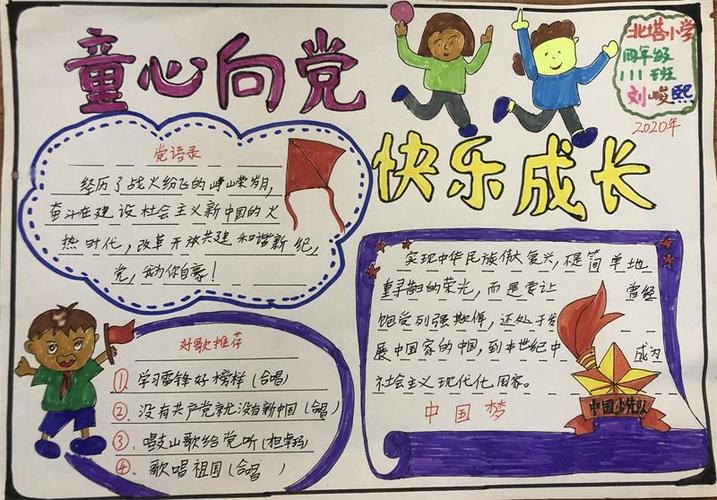 童心向党
快乐成长
北塔小学
四年级
111班
刘峻熙
2020年
党语录
经历了战火纷飞的峥嵘岁月,
奋斗在建设社会主义新中国的火
热时代,改革开放共建和谐新纪,
党,我为你自豪!
好歌推荐
①、学习雷锋好榜样(合唱)
②、没有共产党就没有新中国(合唱)
③、唱支山歌给党听
④、歌唱祖国(合唱)
实现中华民族伟大复兴,不是简单地
重寻昔日的荣光,而是要让 曾经
饱受列强欺侮,还处于发
展中国家的中国,到本世纪中 成为
社会主义现代化国家。
中国梦
中国少先队